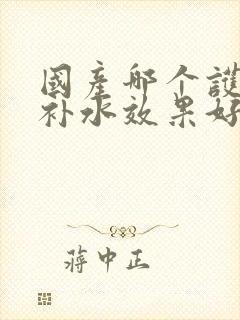 國產哪个護
补水效果好
蔣中正